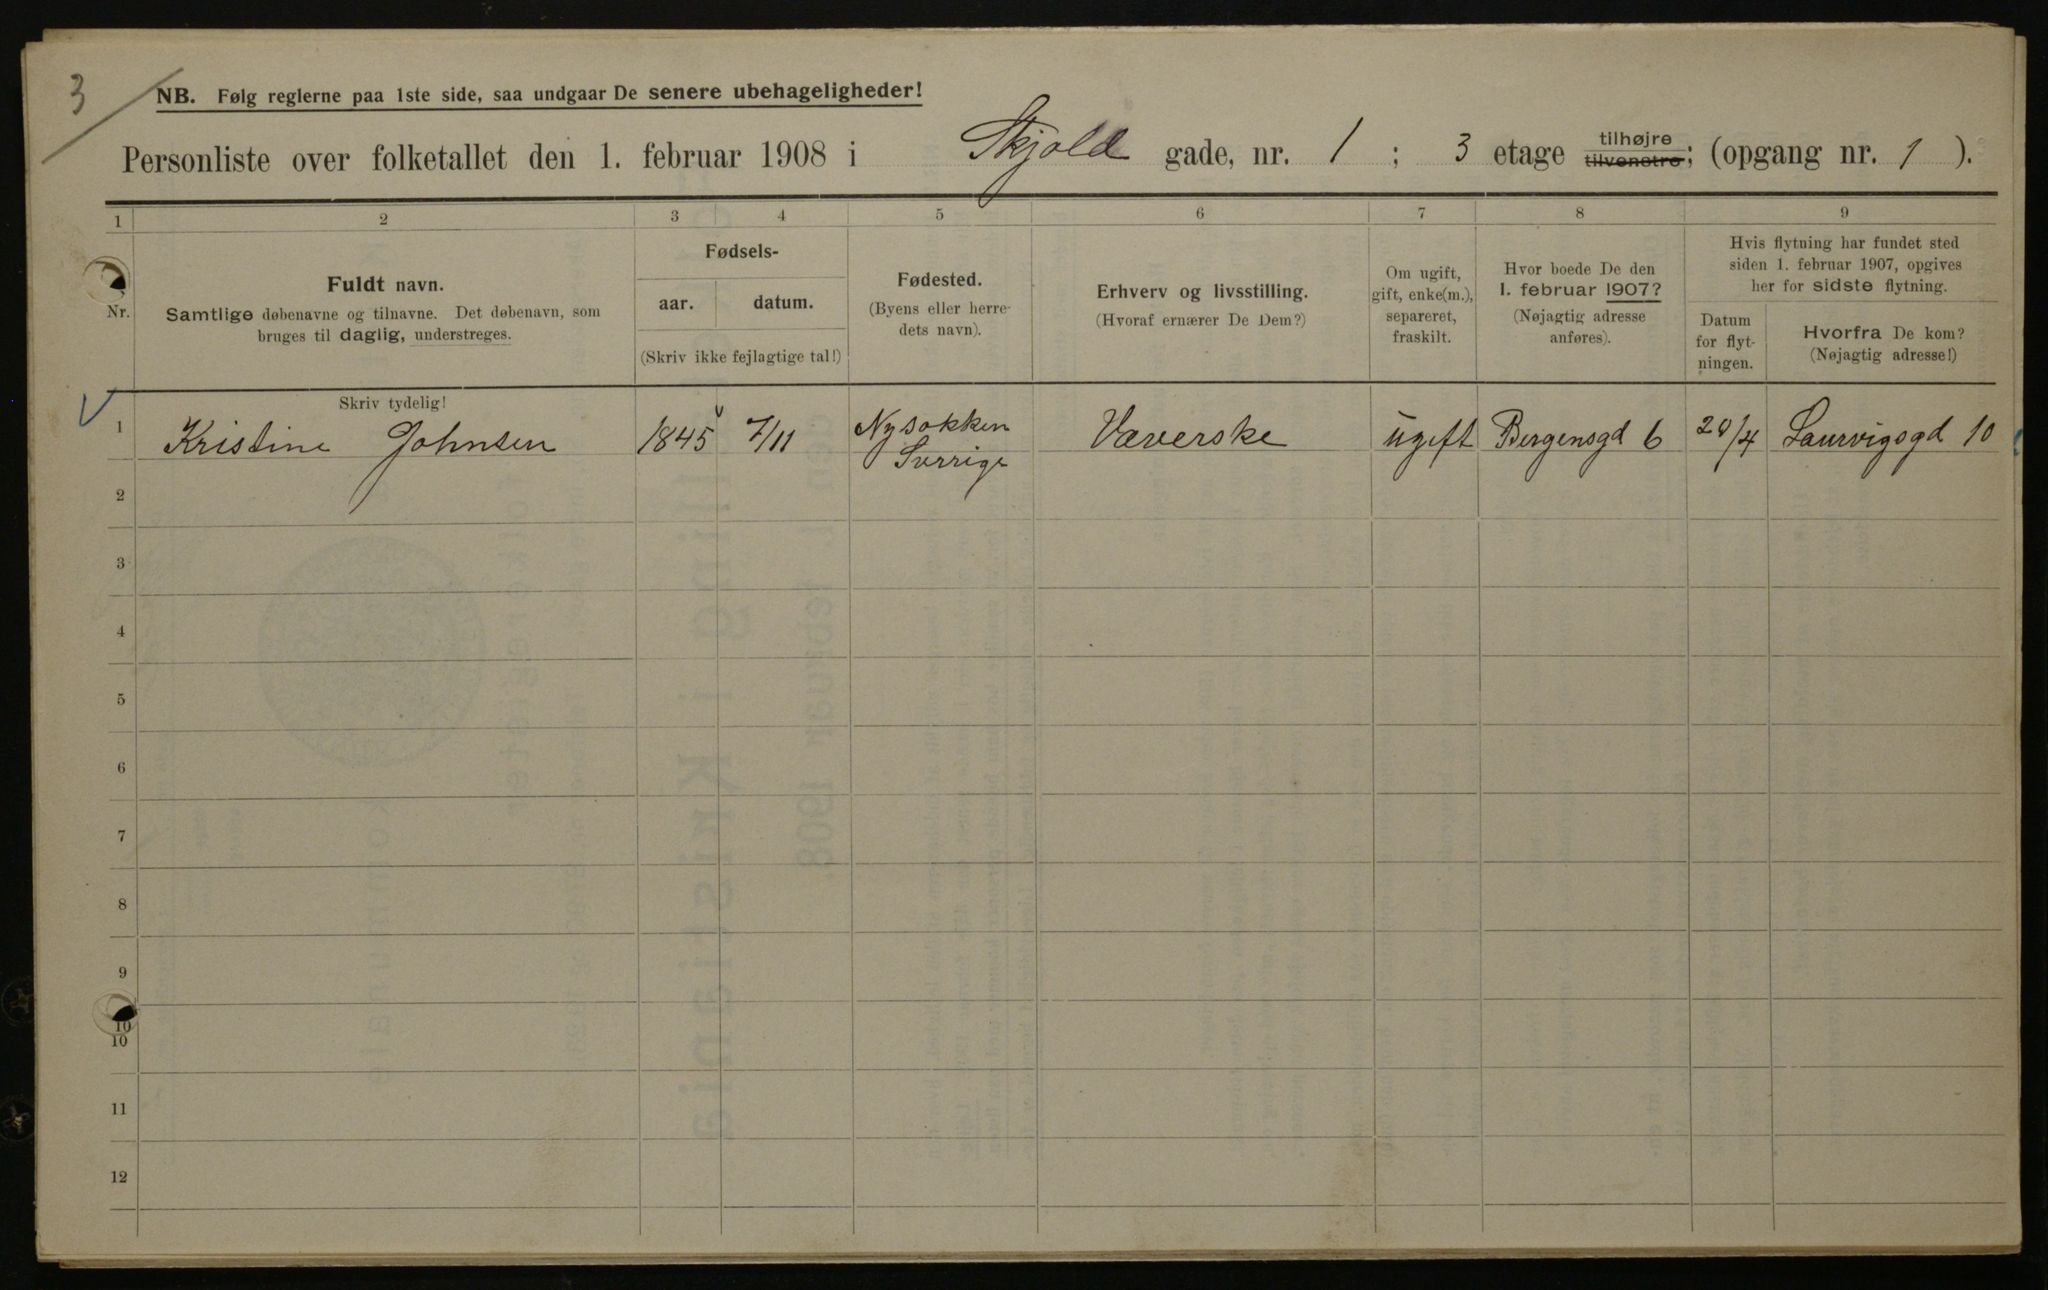 3
NB. Følg reglerne paa 1ste side, saa undgaar De senere ubehageligheder!
Personliste over folketallet den 1. februar 1908 i Skjold gade, nr. 1 ; 3 etage tilhøjre tilvenstre; (opgang nr. 1 ).
1 2 3 4 5 6 7 8 9
Nr.
Fuldt navn.
Samtlige døbenavne og tilnavne. Det døbenavn, som
bruges til daglig, understreges.
Fødsels-
aar. datum.
(Skriv ikke fejlagtige tal!)
Fødested.
(Byens eller herre-
dets navn).
Erhverv og livsstilling.
(Hvoraf ernærer De Dem?)
Om ugift,
gift, enke(m.),
separeret,
fraskilt.
Hvor boede De den
1. februar 1907?
(Nøjagtig adresse
anføres).
Hvis flytning har fundet sted
siden 1. februar 1907, opgives
her for sidste flytning.
Datum
for flyt-
ningen.
Hvorfra De kom?
(Nøjagtig adresse!)
Skriv tydelig!
1 Kristine Johnsen 1845 7/11 Nysokken Sverrige Væverske ugift Bergensgd 6 20/4 Laurvigsgd 10
2
3
4
5
6
7
8
9
10
10
11
12